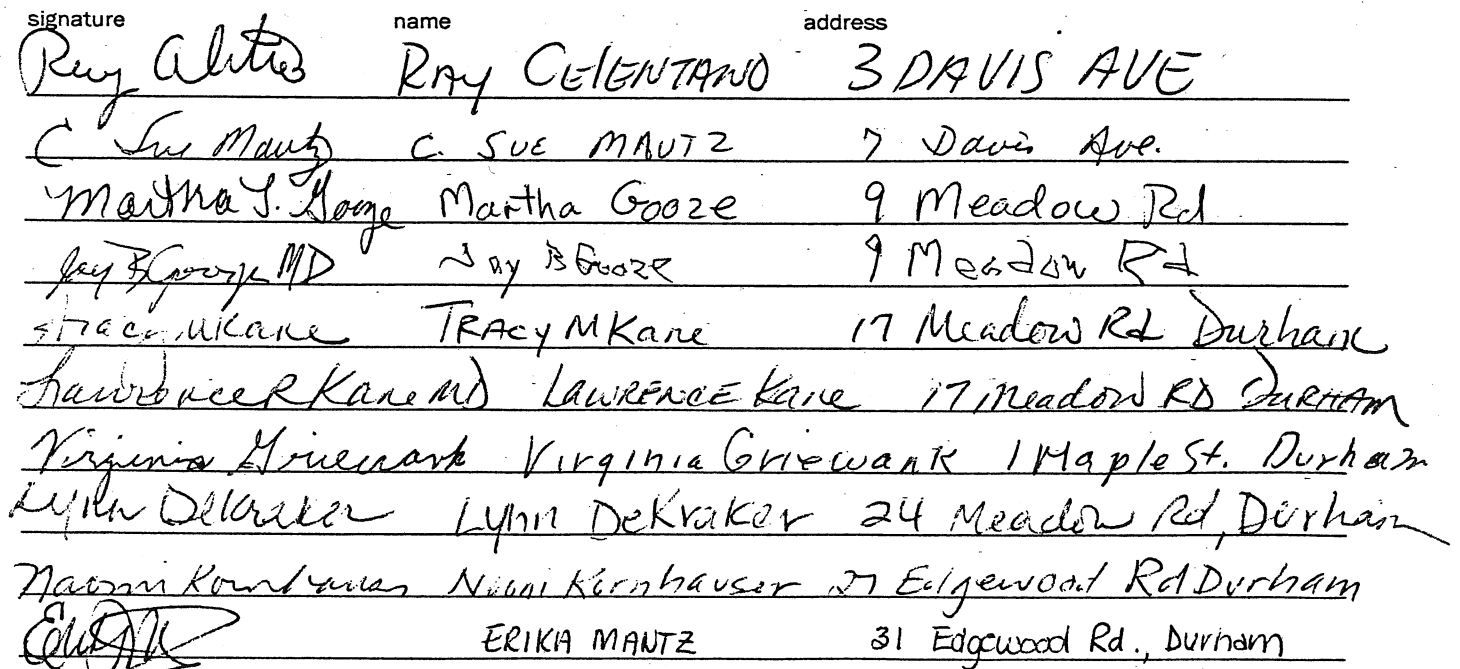 signature name address
Ray RAY CELENTANO 3 DAVIS AVE
C Sue Mautz C. SUE MAUTZ 7 Davis Ave.
Martha J. Gooze Martha Gooze 9 Meadow Rd
Jay B Gooze MD Jay B Gooze 9 Meadow Rd
Tracy M Kane TRACY M Kane 17 Meadow Rd Durham
Lawrence R Kane MD LAWRENCE Kane 17 Meadow RD DURHAM
Virginia Griewank Virginia Griewank 1 Maple St. Durham
Lynn DeKraker Lynn DeKraker 24 Meadow Rd, Durham
Naomi Kornhauser Naomi Kornhauser 27 Edgewood Rd Durham
ERIKA MANTZ 31 Edgewood Rd., Durham